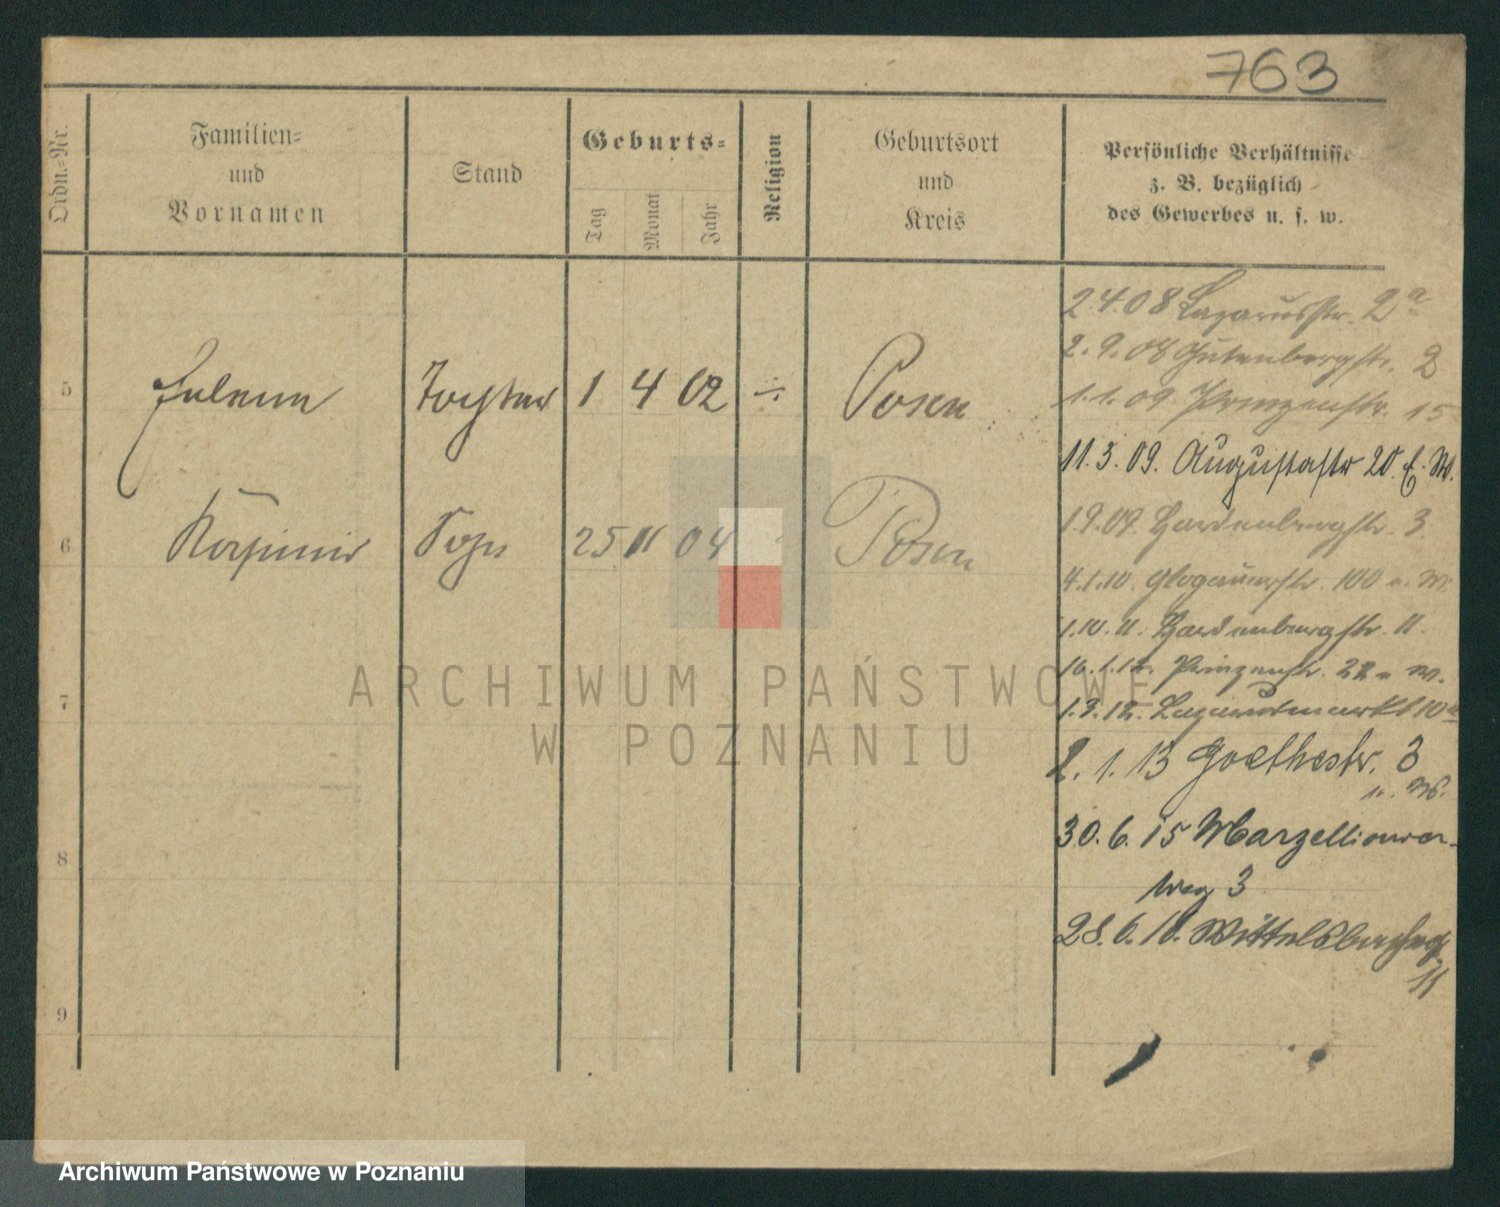 763
Ordn.-Nr.
Familien-
und
Vornamen
Stand
Geburts-
Tag
Monat
Jahr
Religion
Geburtsort
und
Kreis
Persönliche Verhältnisse
z. B. bezüglich
des Gewerbes u. s. w.
2.4.08 Lazarusstr. 2a
2.9.08 Gutenbergstr. 2
5 Helene Tochter 1 4 02 ÷ Posen
1.1.09 Prinzenstr. 15
11.5.09. Augustastr 20. E. W.
6 Kasimir Sohn 25 11 04 Posen
1.9.09. Hardenbergstr. 3
4.1.10. Glogauerstr. 100 n. W.
1.10.11. Hardenbergstr. 11.
16.1.12. Prinzenstr. 22 n. W.
7
1.3.12. Lazarusmarkt 10a
2.1.13 Goethestr. 3
n. W.
30.6.15 Marzellinower-
8
weg 3
28.6.18. Wittelsbacherstr.
11
9
ARCHIWUM PAŃSTWOWE
W POZNANIU
Archiwum Państwowe w Poznaniu